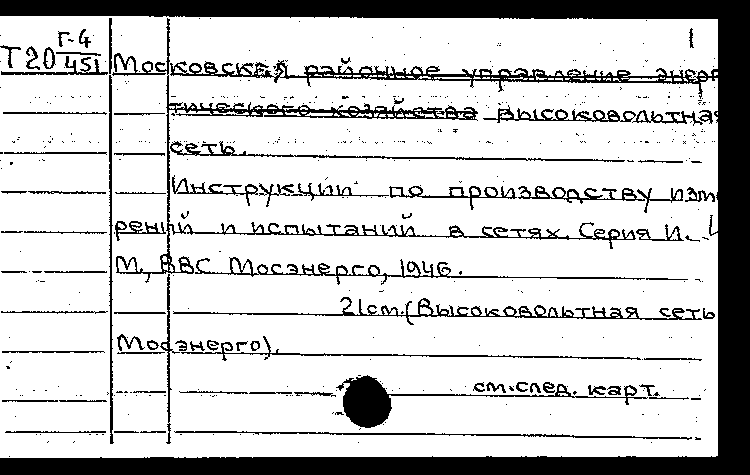 1
Т20 Г-4/451 Московская районное управление энерг
тического хозяйства высоковольтная
сеть.
Инструкции по производству изм
рений и испытаний в сетях. Серия И.
М., ВВС Мосэнерго, 1946.
21см. (Высоковольтная сеть
Мосэнерго).
см.след. карт.